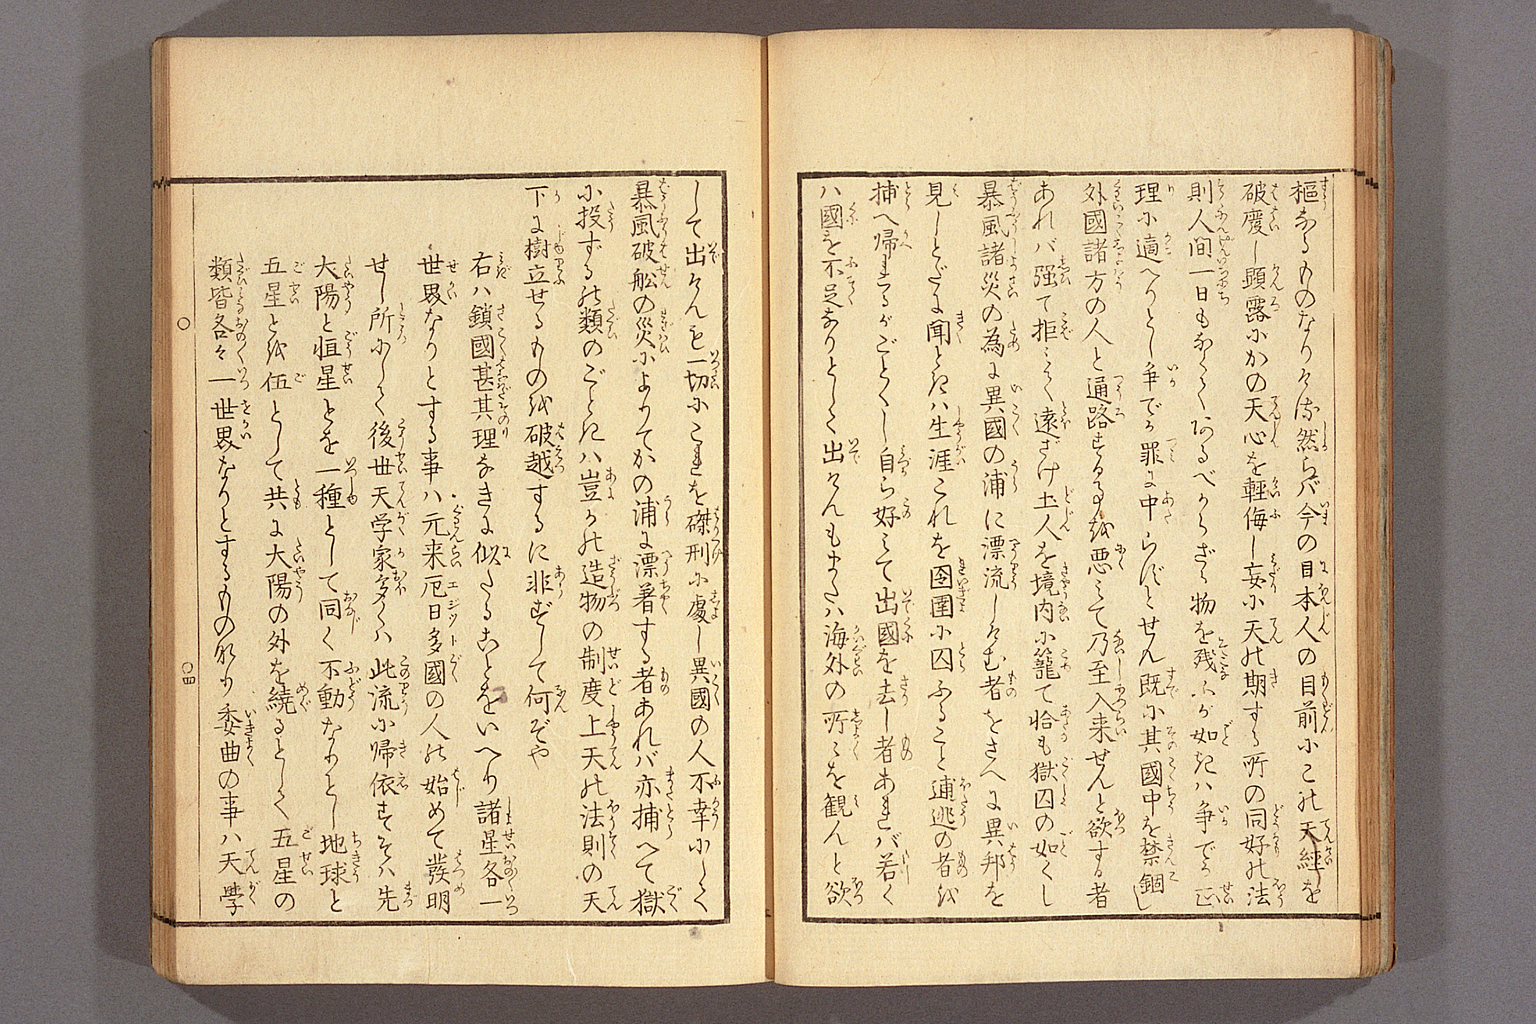 枢なるものなり然らバ今の日本人の目前にこの天經を
破廃し顕露にかの天心を軽侮し妄に天の期する所の同好の法
則人間一日もなくてあるべからざる物を残ふが如きハ争でか正
理に適へりとし争でか罪に中らずとせん既に其國中を禁錮し
外國諸方の人と通路する事を悪ミて乃至入来せんと欲する者
あれバ强て拒ミて遠ざけ土人を境内に籠て恰も獄囚の如くし
暴風諸災の為に異國の浦に漂流しけむ者をさへに異邦を
見しとだに聞ときハ生涯これを囹圄に囚ふること逋逃の者を
捕へ帰まるがごとくし自ら好ミて出國を去し者あれバ若く
ハ國を不足なりとして出けんもまたハ海外の所〻を観んと欲
して出けんも一切にこれを磔刑に處し異國の人不幸にして
暴風破舩の災によりてかの浦に漂着する者あれバ亦捕へて獄
に投ずるの類のごときハ豈かの造物の制度上天の法則の天
下に樹立せるものを破越するに非ずして何ぞや
右ハ鎖國甚其理なきに似たることをいへり諸星各一
世界なりとする事ハ元来厄日多國の人の始めて發明
せし所にして後世天学家多くハ此流に帰依す其ハ先
大陽と恒星とを一種として同く不動なりとし地球と
五星とを伍として共に大陽の外を繞るとして五星の
類皆各々一世界なりとするもの也委曲の事ハ天學